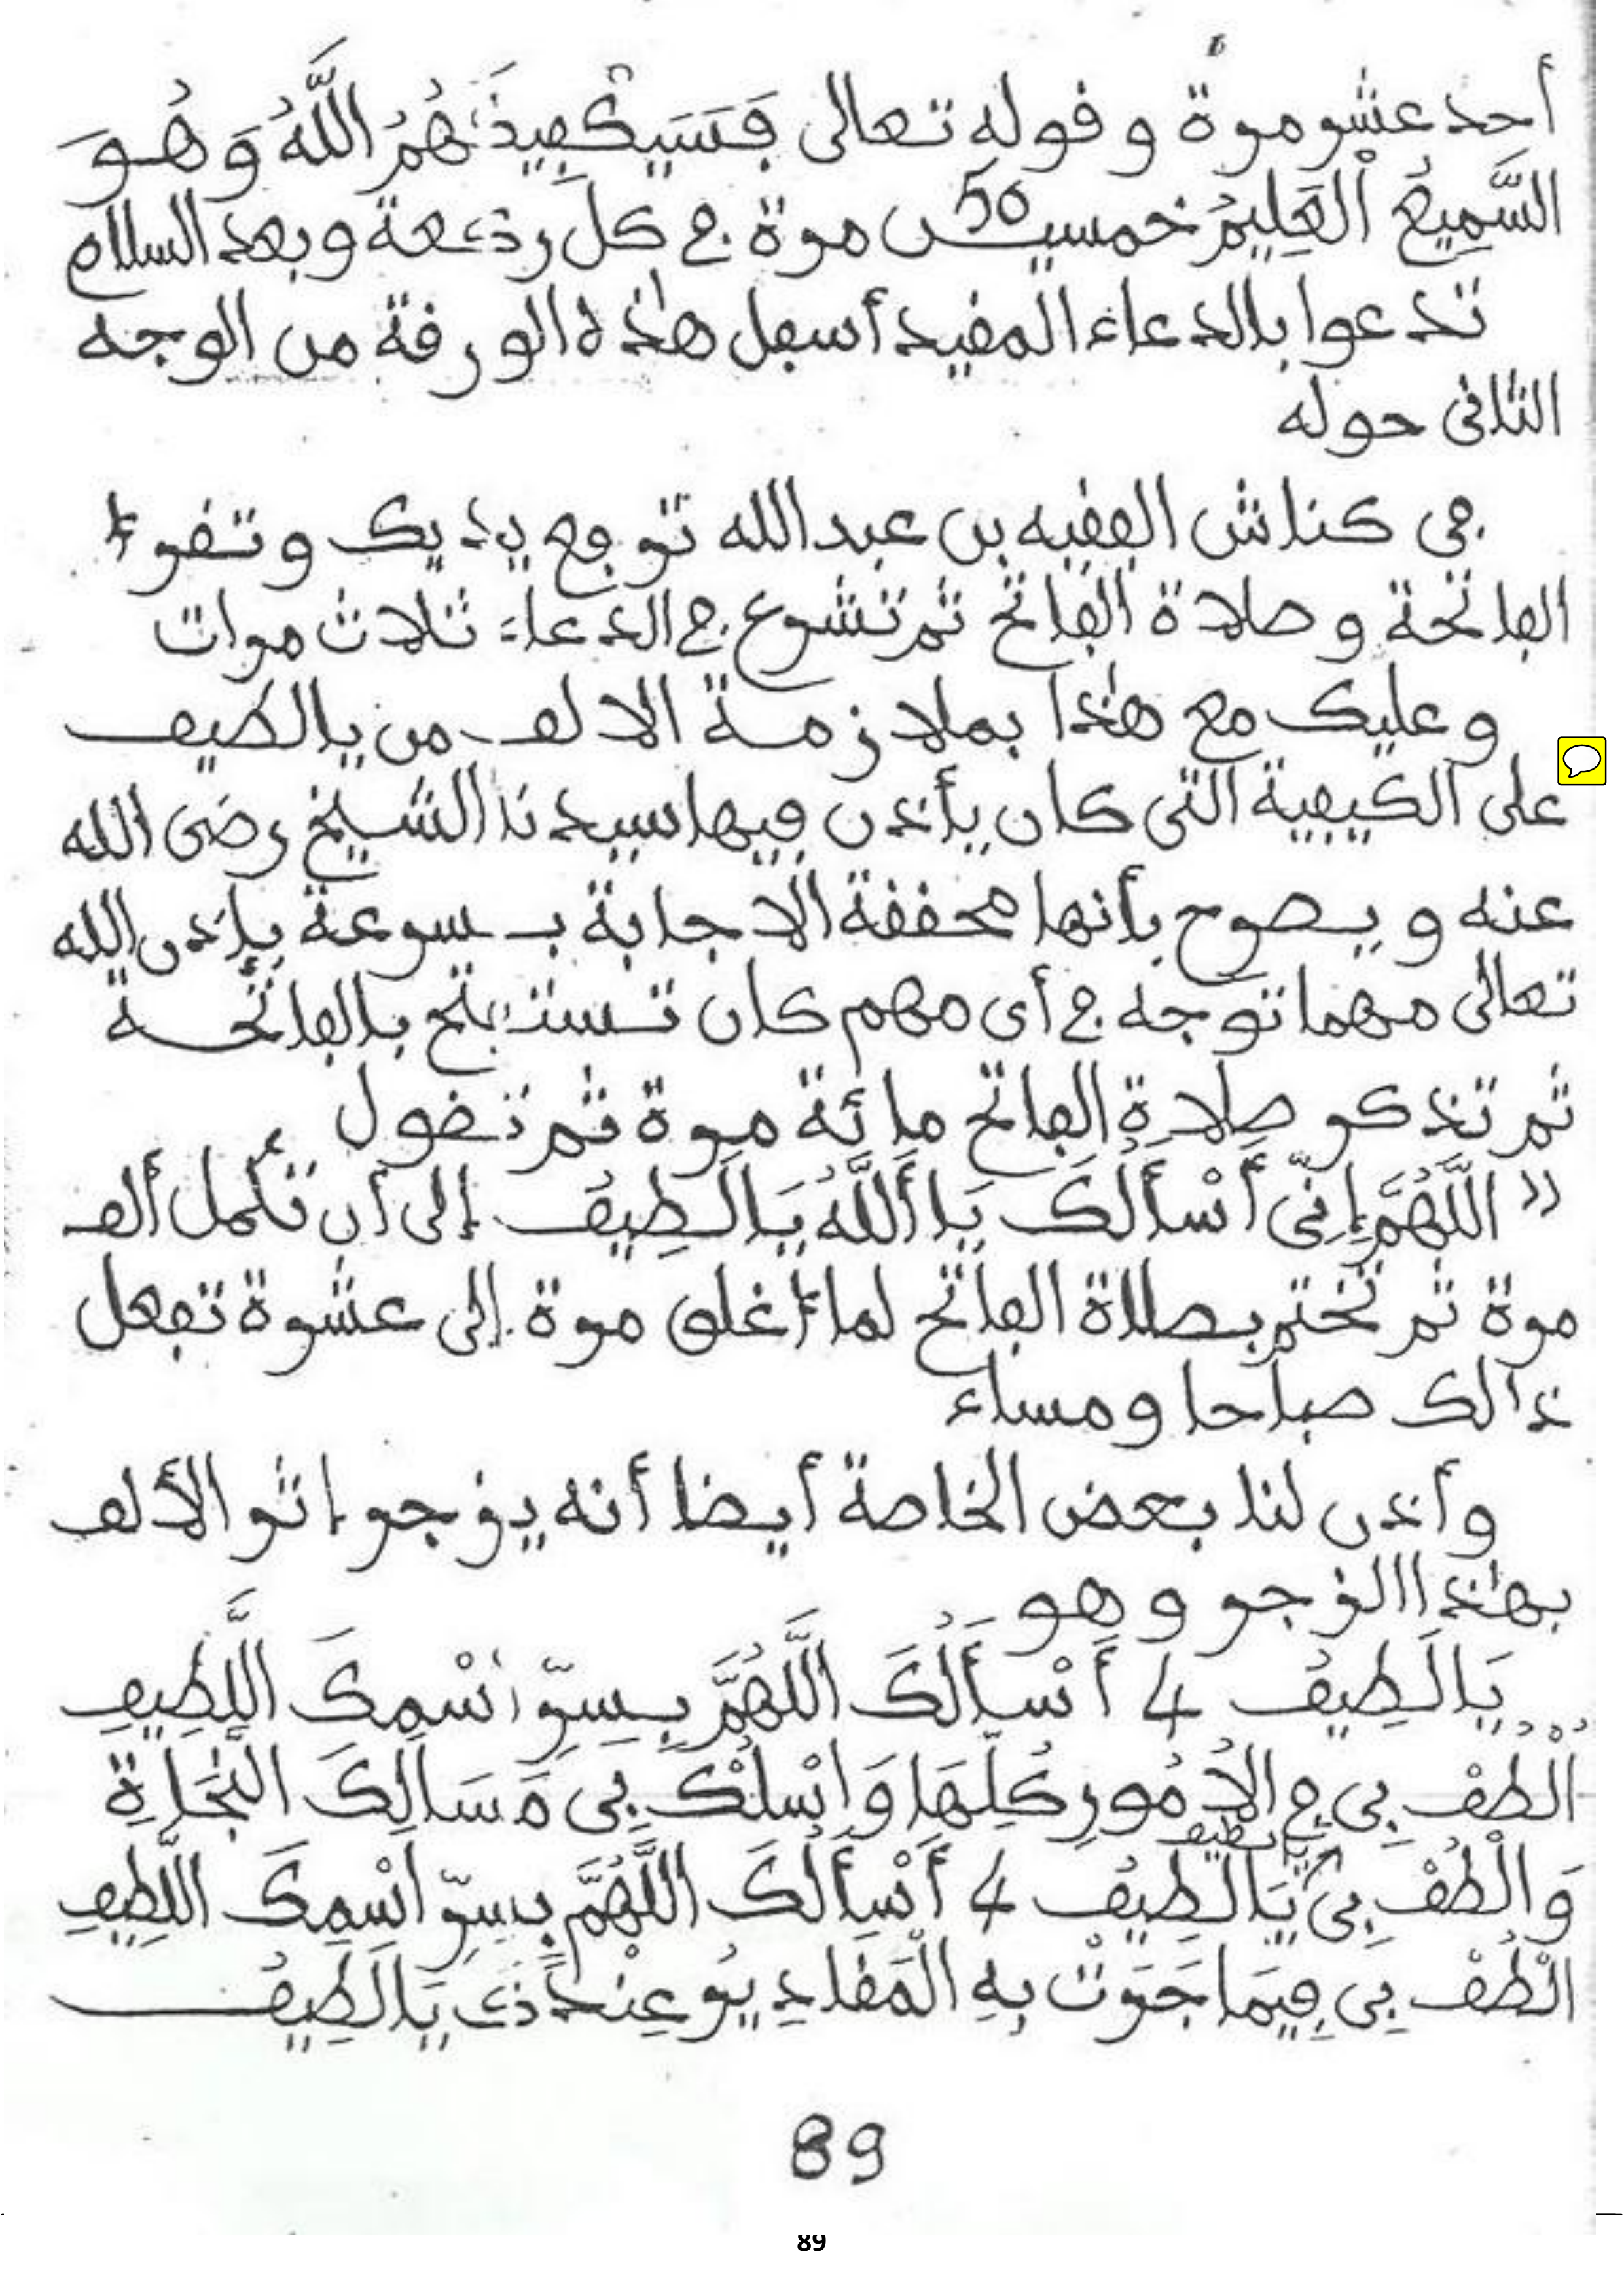 أحد عشر مرة و قوله تعالى فَسَيَكْفِيكَهُمُ اللَّهُ وَهُوَ
السَّمِيعُ الْعَلِيمُ خمسين 50 مرة في كل ركعة وبعد السلام
تدعوا بالدعاء المفيد أسفل هذه الورقة من الوجه
الثانى حوله
في كناش الفقيه بن عبد الله ترفع يديك و تقرأ
الفاتحة و صلاة الفاتح ثم تشرع في الدعاء ثلاث مرات
و عليك مع هذا بملازمة الالف من يالطيف
على الكيفية التى كان يأذن فيها سيدنا الشيخ رضى الله
عنه و يصرح بأنها محققة الاجابة بسرعة بإذن الله
تعالى مهما توجه في أى مهم كان تستفتح بالفاتحة
ثم تذكر صلاة الفاتح مائة مرة ثم تقول
" اللَّهُمَّ إِنِّى أَسْأَلُكَ يَا أَللَّهُ يَالَطِيفُ إلى أن تكمل ألف
مرة ثم تختم بصلاة الفاتح لما أغلق مرة إلى عشرة تفعل
ذالك صباحا ومساء
و أذن لنا بعض الخاصة أيضا أنه يزجر اثر الألف
بهذا الزجر و هو
يَالَطِيفُ 4 أَسْأَلُكَ اللَّهُمَّ بِسِرِّ اسْمِكَ اللَّطِيفِ
اُلْطُفْ بِى فِى الاُمُورِ كُلِّهَا وَاسْلُكْ بِى مَسَالِكَ النَّجَاةِ
وَالْطُفْ بِى يَالَطِيفُ يَالَطِيفُ 4 أَسْأَلُكَ اللَّهُمَّ بِسِرِّ اسْمِكَ اللَّطِيفِ
الْطُفْ بِى فِيمَا جَرَتْ بِهِ الْمَقَادِيرُ عِنْدَكَ يَالَطِيفُ
89
89